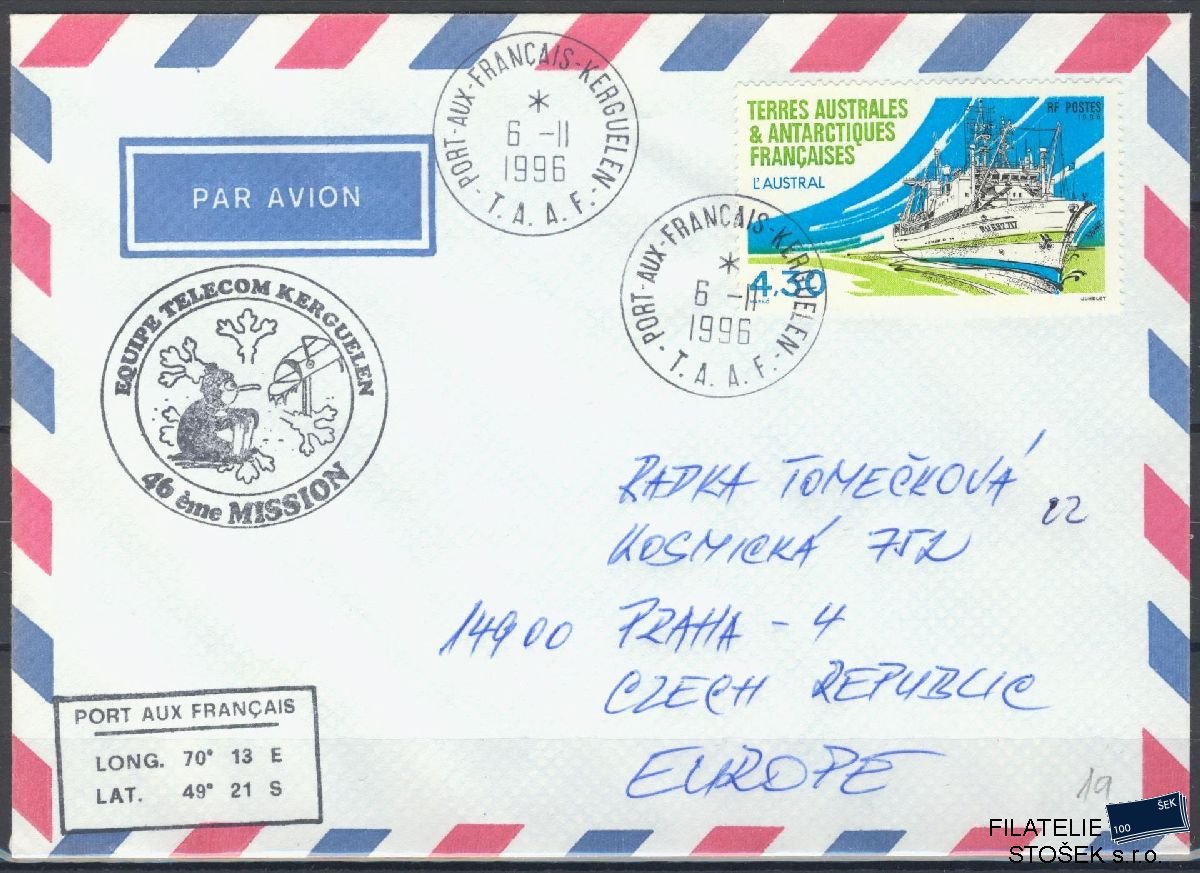 PORT-AUX-FRANÇAIS-KERGUELEN-
*
6 -11
1996
T. A. A. F.-
TERRES AUSTRALES
& ANTARCTIQUES
FRANÇAISES
RF POSTES
L'AUSTRAL
4,30
JUMELET
PAR AVION
PORT-AUX-FRANÇAIS-KERGUELEN-
*
6 -11
1996
T. A. A. F.-
EQUIPE TELECOM KERGUELEN
46 ème MISSION
RADKA TOMEČKOVÁ
22
KOSMICKÁ 752
14900 PRAHA - 4
CZECH REPUBLIC
EUROPE
PORT AUX FRANÇAIS
LONG. 70° 13 E
LAT. 49° 21 S
19
ŠEK
100
FILATELIE
STOŠEK s.r.o.